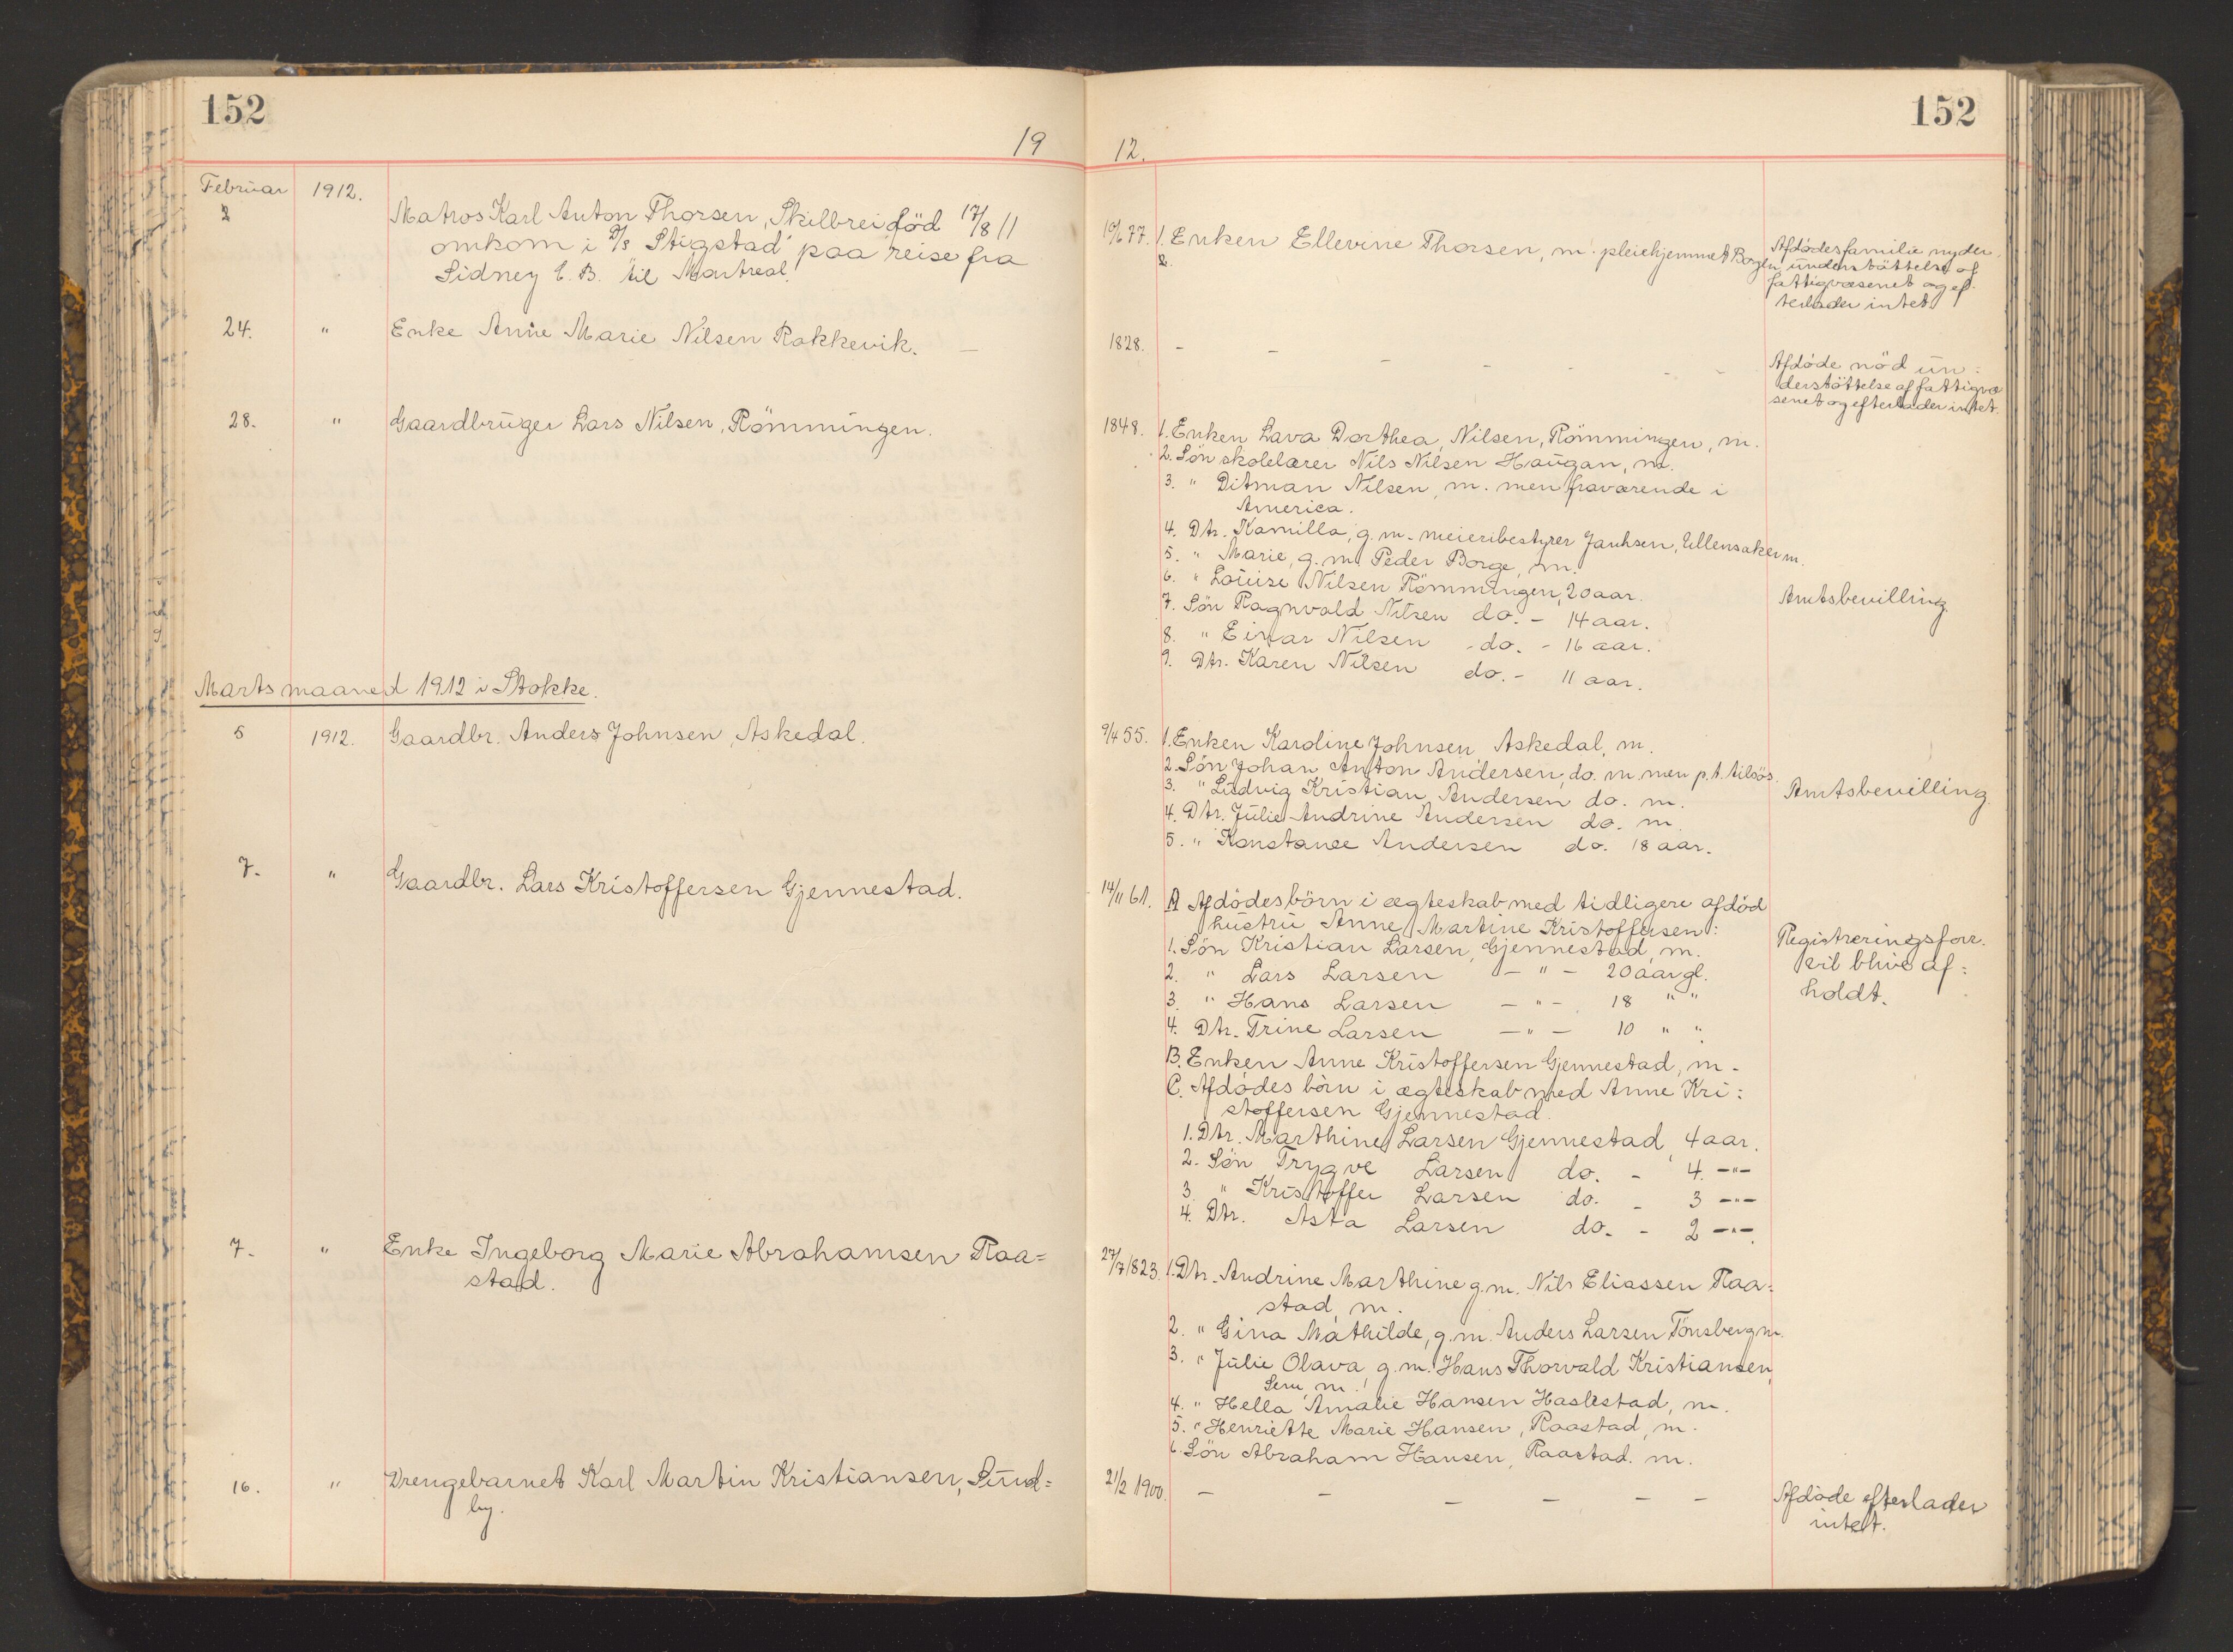 152
152
19 12.
Februar 1912.
2 Matros Karl Anton Thorsen, Skilbrei död 17/8 11
omkom i D/s "Stigstad" paa reise fra
Sidney C. B. til Montreal.
19/6 77. 1. Enken Ellevine Thorsen, m. pleiehjemmet Borgen
2.
Afdödes familie nyder
understöttelse af
fattigvæsenet og ef-
terlader intet.
24. " Enke Anne Marie Nilsen Rakkevik. —
1828. - - - - - - -
Afdöde nöd un-
derstöttelse af fattigvæ
senet og efterlader intet.
28. " Gaardbruger Lars Nilsen, Römmingen.
1848. 1. Enken Lava Dorthea Nilsen, Römmingen, m.
2. Sön skolelærer Nils Nilsen Haugan, m.
3. " Ditman Nilsen, m. men fraværende i
America.
4. Dtr. Kamilla, g. m. meieribestyrer Janhsen, Ullensaker m.
5. " Marie, g. m. Peder Borge, m.
6. " Louise Nilsen Römmingen, 20 aar.
7. Sön Ragnvald Nilsen do. - 14 aar.
8. " Einar Nilsen do. - 16 aar.
9. Dtr. Karen Nilsen do. - 11 aar.
Amtsbevilling.
Marts maaned 1912 i Stokke.
5 1912. Gaardbr. Anders Johnsen, Askedal.
9/4 55. 1. Enken Karoline Johnsen Askedal, m.
2. Sön Johan Anton Andersen, do. m. men p. t. tilsös.
3. " Ludvig Kristian Andersen do. m.
4. Dtr. Julie Andrine Andersen do. m.
5. " Konstance Andersen do. 18 aar.
Amtsbevilling.
7. " Gaardbr. Lars Kristoffersen Gjennestad.
14/11 61. A Afdödes börn i ægteskab med tidligere afdöd
hustru Anne Martine Kristoffersen:
1. Sön Kristian Larsen, Gjennestad, m.
2. " Lars Larsen - " - 20 aar gl.
3. " Hans Larsen - " - 18 " "
4. Dtr. Trine Larsen - " - 10 " "
B. Enken Anne Kristoffersen Gjennestad, m.
C. Afdödes börn i ægteskab med Anne Kri-
stoffersen Gjennestad.
1. Dtr. Marthine Larsen Gjennestad, 4 aar.
2. Sön Trygve Larsen do. - 4 -"-
3. " Kristoffer Larsen do. - 3 -"-
4. Dtr. Asta Larsen do. - 2 -"-
Registreringsforr.
vil blive af-
holdt.
7. " Enke Ingeborg Marie Abrahamsen Raa=
stad.
27/7 1823. 1. Dtr. Andrine Marthine g. m. Nils Eliassen Raa-
stad, m.
2. " Gina Mathilde, g. m. Anders Larsen Tönsberg m.
3. " Julie Olava, g. m. Hans Thorvald Kristiansen,
Sem, m.
4. " Hella Amalie Hansen Haslestad, m.
5. " Henriette Marie Hansen, Raastad, m.
6. Sön Abraham Hansen, Raastad. m.
16. " Drengebarnet Karl Martin Kristiansen, Sund=
by.
21/2 1900. - - - - - -
Afdöde efterlader
intet.